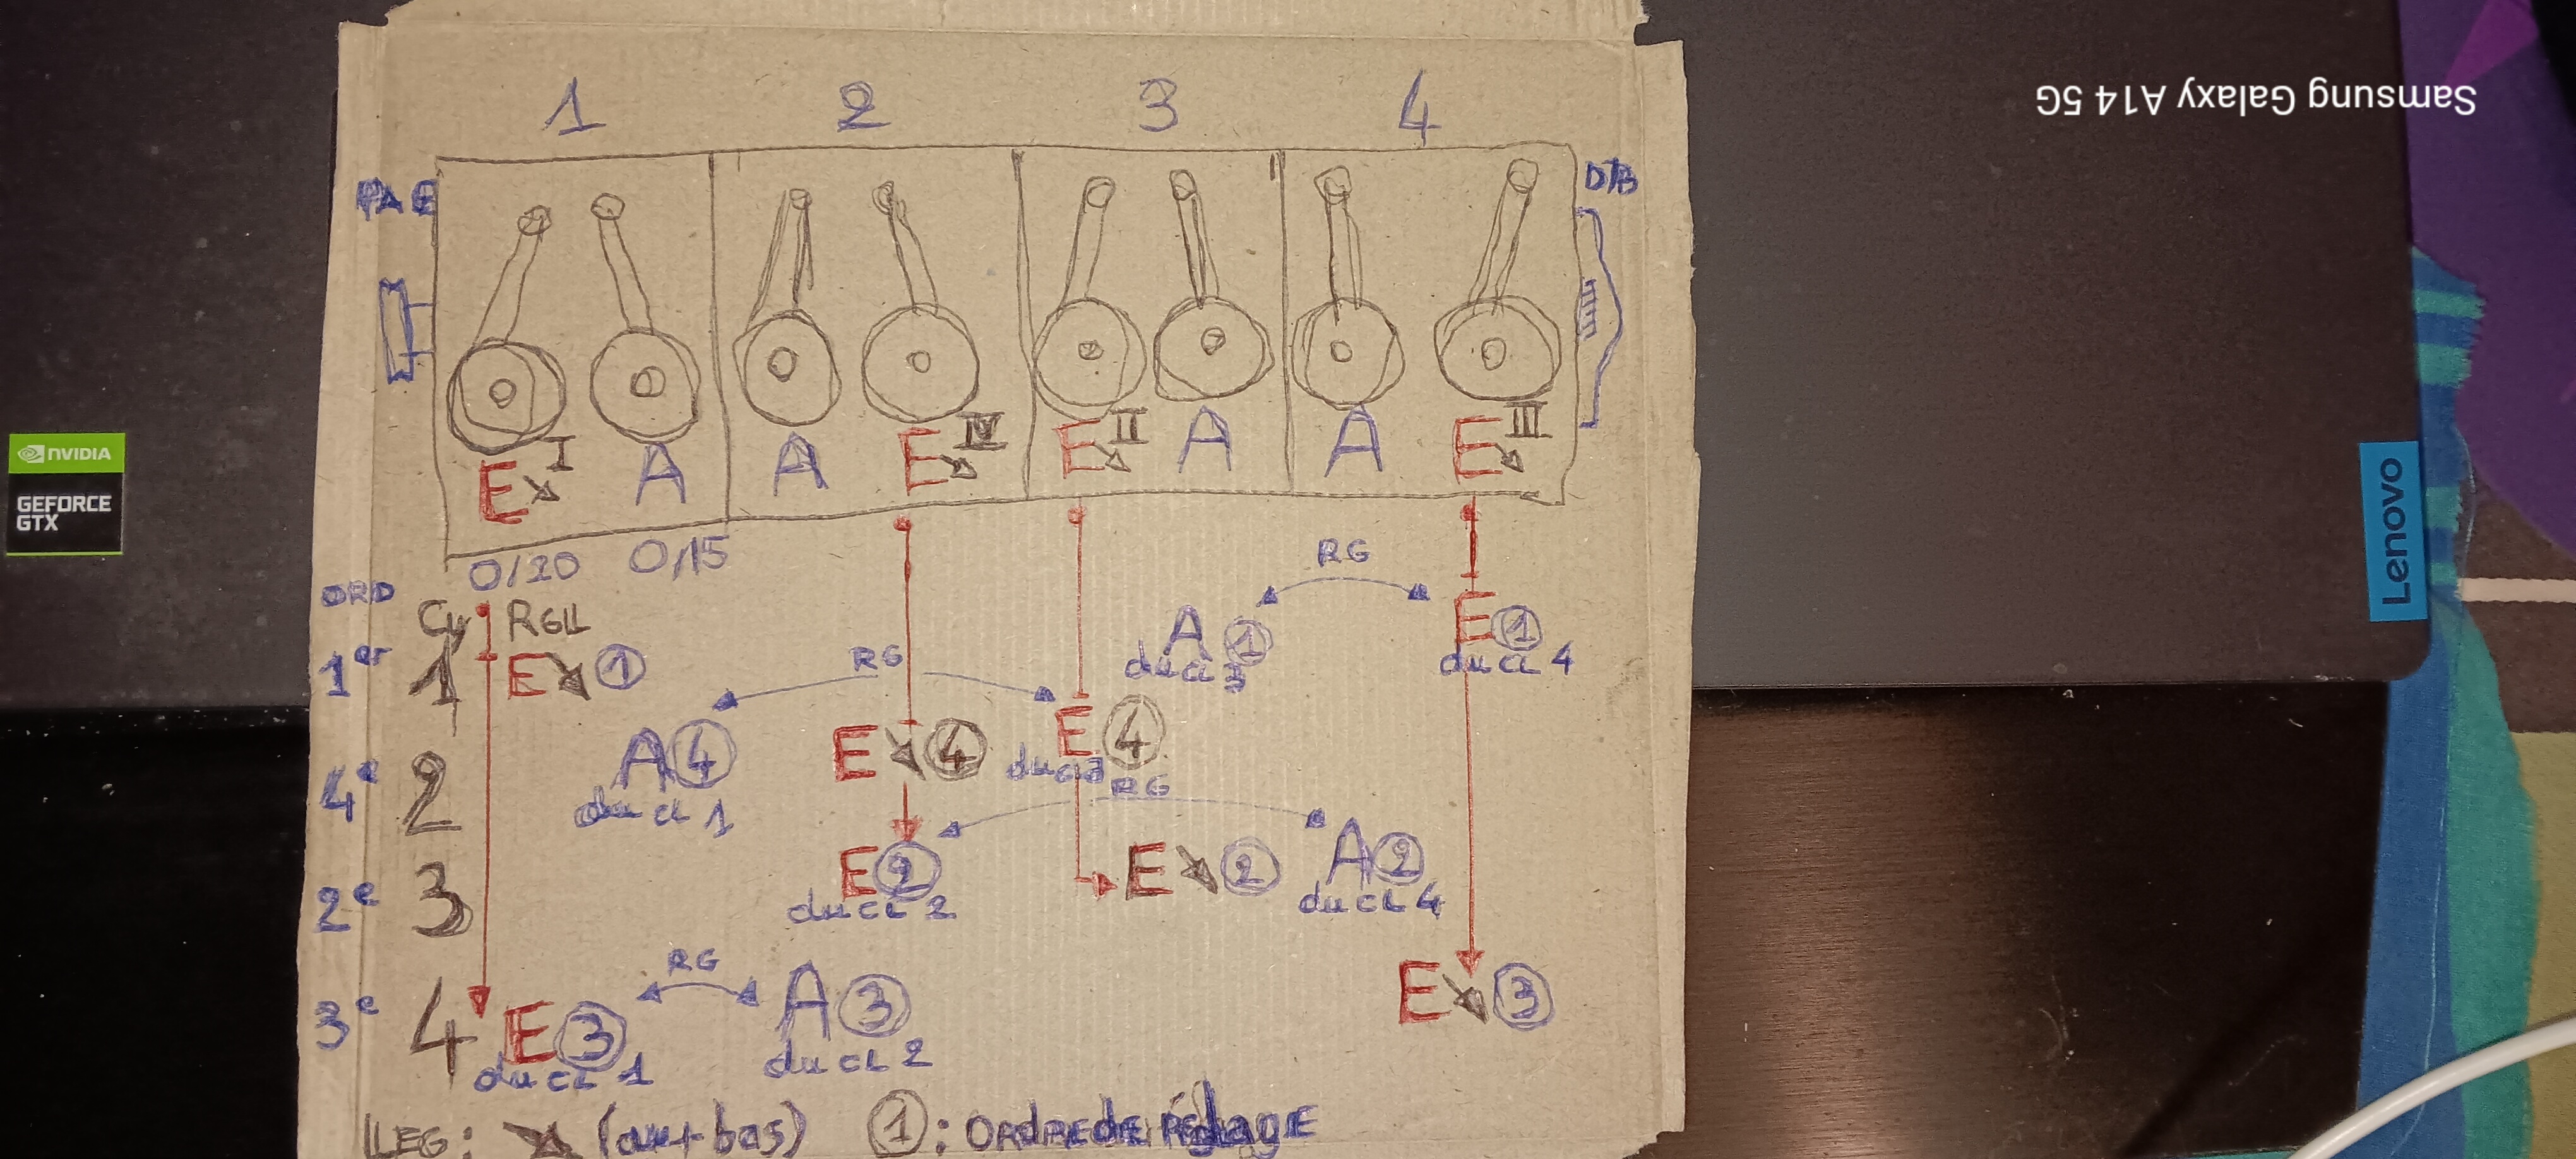 1 2 3 4
D/B
I IV II III
E A A E E A A E
0/20 0/15
ORD
Cy RGL
RG
1er 1 E 1
A 1 du cl 3
E 1 du cl 4
RG
4e 2
A 4 du cl 1
E 4
E 4 du cl 3
RG
2e 3
E 2 du cl 2
E 2
A 2 du cl 4
RG
3e 4
E 3 du cl 1
A 3 du cl 2
E 3
LEG : (au + bas) 1 : ORDRE de RéglagE
NVIDIA
GEFORCE
GTX
Lenovo
Samsung Galaxy A14 5G